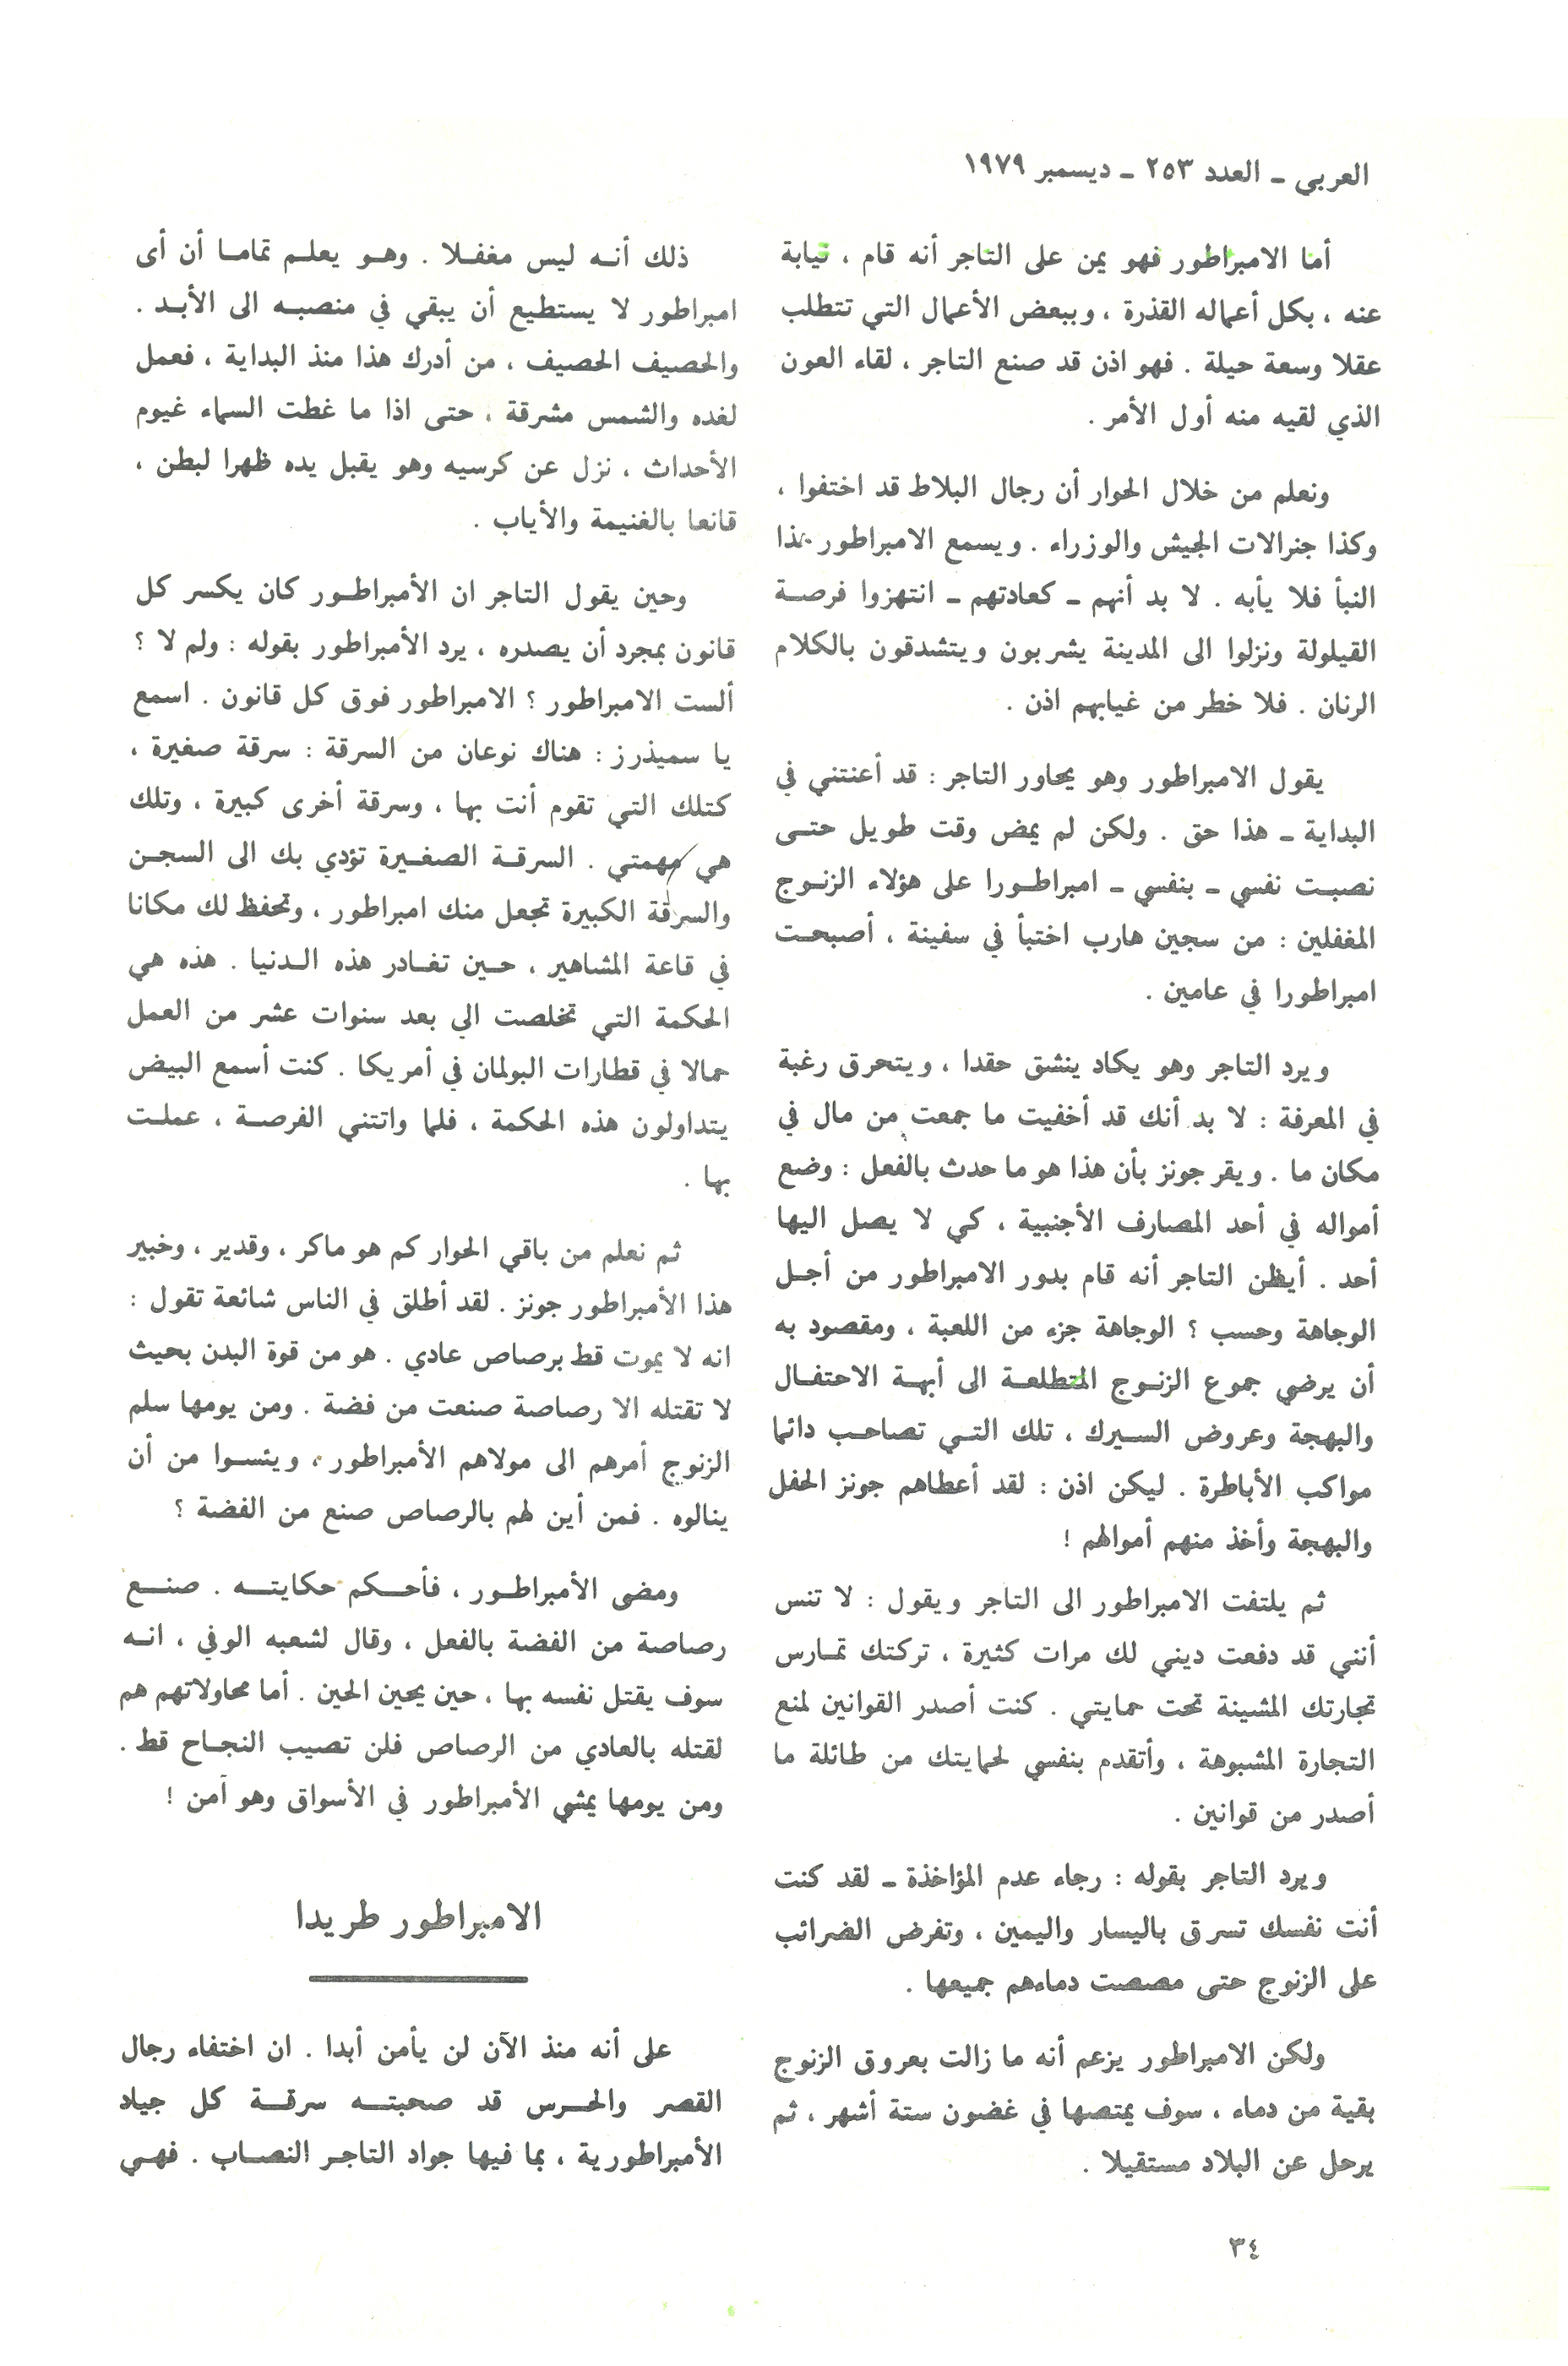 العربي ـ العدد ٢٥٣ ـ ديسمبر ١٩٧٩
أما الامبراطور فهو يمن على التاجر أنه قام ، نيابة
عنه ، بكل أعماله القذرة ، وببعض الأعمال التي تتطلب
عقلا وسعة حيلة . فهو اذن قد صنع التاجر ، لقاء العون
الذي لقيه منه أول الأمر .
ونعلم من خلال الحوار أن رجال البلاط قد اختفوا ،
وكذا جنرالات الجيش والوزراء . ويسمع الامبراطور بهذا
النبأ فلا يأبه . لا بد أنهم ـ كعادتهم ـ انتهزوا فرصة
القيلولة ونزلوا الى المدينة يشربون ويتشدقون بالكلام
الرنان . فلا خطر من غيابهم اذن .
يقول الامبراطور وهو يحاور التاجر : قد أعنتني في
البداية ـ هذا حق . ولكن لم يمض وقت طويل حتى
نصبت نفسي ـ بنفسي ـ امبراطورا على هؤلاء الزنوج
المغفلين : من سجين هارب اختبأ في سفينة ، أصبحت
امبراطورا في عامين .
ويرد التاجر وهو يكاد ينشق حقدا ، ويتحرق رغبة
في المعرفة : لا بد أنك قد أخفيت ما جمعت من مال في
مكان ما . ويقر جونز بأن هذا هو ما حدث بالفعل : وضع
أمواله في أحد المصارف الأجنبية ، كي لا يصل اليها
أحد . أيظن التاجر أنه قام بدور الامبراطور من أجل
الوجاهة وحسب ؟ الوجاهة جزء من اللعبة ، ومقصود به
أن يرضي جموع الزنوج المتطلعة الى أبهة الاحتفال
والبهجة وعروض السيرك ، تلك التي تصاحب دائما
مواكب الأباطرة . ليكن اذن : لقد أعطاهم جونز الحفل
والبهجة وأخذ منهم أموالهم !
ثم يلتفت الامبراطور الى التاجر ويقول : لا تنس
أنني قد دفعت ديني لك مرات كثيرة ، تركتك تمارس
تجارتك المشينة تحت حمايتي . كنت أصدر القوانين لمنع
التجارة المشبوهة ، وأتقدم بنفسي لحمايتك من طائلة ما
أصدر من قوانين .
ويرد التاجر بقوله : رجاء عدم المؤاخذة ـ لقد كنت
أنت نفسك تسرق باليسار واليمين ، وتفرض الضرائب
على الزنوج حتى مصصت دماءهم جميعها .
ولكن الامبراطور يزعم أنه ما زالت بعروق الزنوج
بقية من دماء ، سوف يمتصها في غضون ستة أشهر ، ثم
يرحل عن البلاد مستقيلا .
ذلك أنه ليس مغفلا . وهو يعلم تماما أن أى
امبراطور لا يستطيع أن يبقي في منصبه الى الأبد .
والحصيف الحصيف ، من أدرك هذا منذ البداية ، فعمل
لغده والشمس مشرقة ، حتى اذا ما غطت السماء غيوم
الأحداث ، نزل عن كرسيه وهو يقبل يده ظهرا لبطن ،
قانعا بالغنيمة والأياب .
وحين يقول التاجر ان الأمبراطور كان يكسر كل
قانون بمجرد أن يصدره ، يرد الأمبراطور بقوله : ولم لا ؟
ألست الامبراطور ؟ الامبراطور فوق كل قانون . اسمع
يا سميذرز : هناك نوعان من السرقة : سرقة صغيرة ،
كتلك التي تقوم أنت بها ، وسرقة أخرى كبيرة ، وتلك
هي مهمتي . السرقة الصغيرة تؤدي بك الى السجن
والسرقة الكبيرة تجعل منك امبراطور ، وتحفظ لك مكانا
في قاعة المشاهير ، حين تغادر هذه الدنيا . هذه هي
الحكمة التي تخلصت الي بعد سنوات عشر من العمل
حمالا في قطارات البولمان في أمريكا . كنت أسمع البيض
يتداولون هذه الحكمة ، فلما واتتني الفرصة ، عملت
بها .
ثم نعلم من باقي الحوار كم هو ماكر ، وقدير ، وخبير
هذا الأمبراطور جونز . لقد أطلق في الناس شائعة تقول :
انه لا يموت قط برصاص عادي . هو من قوة البدن بحيث
لا تقتله الا رصاصة صنعت من فضة . ومن يومها سلم
الزنوج أمرهم الى مولاهم الأمبراطور ، ويئسوا من أن
ينالوه . فمن أين لهم بالرصاص صنع من الفضة ؟
ومضى الأمبراطور ، فأحكم حكايته . صنع
رصاصة من الفضة بالفعل ، وقال لشعبه الوفي ، انه
سوف يقتل نفسه بها ، حين يحين الحين . أما محاولاتهم هم
لقتله بالعادي من الرصاص فلن تصيب النجاح قط .
ومن يومها يمشي الأمبراطور في الأسواق وهو آمن !
الامبراطور طريدا
على أنه منذ الآن لن يأمن أبدا . ان اختفاء رجال
القصر والحرس قد صحبته سرقة كل جياد
الأمبراطورية ، بما فيها جواد التاجر النصاب . فهي
٣٤